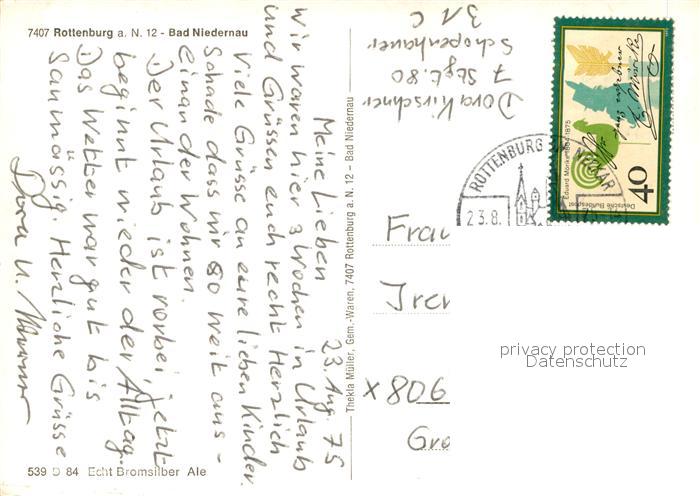 7407 Rottenburg a. N. 12 - Bad Niedernau
23. Aug. 75
Meine Lieben
Wir waren hier 3 Wochen in Urlaub
und Grüssen euch recht Herzlich
Viele Grüsse an eure lieben Kinder.
Schade dass wir so weit aus-
einander Wohnen.
Der Urlaub ist vorbei, jetzt
beginnt wieder der Alltag.
Das Wetter war gut bis
Saumässig Herzliche Grüsse
Dora u.
539 D 84 Echt Bromsilber Ale
Thekla Müller, Gem.-Waren, 7407 Rottenburg a. N. 12 - Bad Niedernau
Dora Kirschner
7 Stgt. 80
Schopenhauer
31 C
Eduard Mörike 1804-1875
Deutsche Bundespost
40
ROTTENBURG
NECKAR
23.8.
Frau
Iren
X 806
Gro
privacy protection
Datenschutz